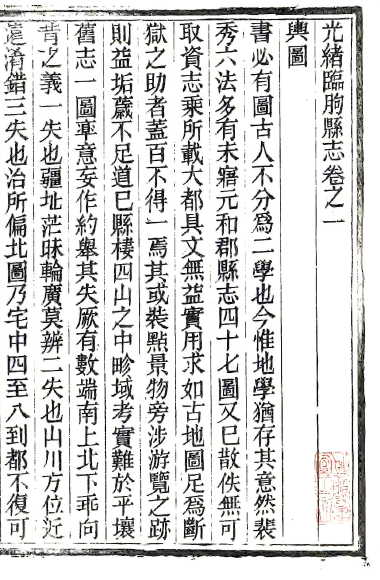 光緒臨朐縣志卷之一
輿圖
書必有圖古人不分爲二學也今惟地學猶存其意然裴
秀六法多有未寤元和郡縣志四十七圖又巳散佚無可
取資志乘所載大都具文無益實用求如古地圖足爲斷
獄之助者蓋百不得一焉其或裝點景物旁涉游覽之跡
則益垢薉不足道巳縣棲四山之中畛域考實難於平壤
舊志一圖率意妄作約舉其失厥有數端南上北下乖向
背之義一失也疆址茫昧輪廣莫辨二失也山川方位近
遠淆錯三失也治所偏北圖乃宅中四至八到都不復可